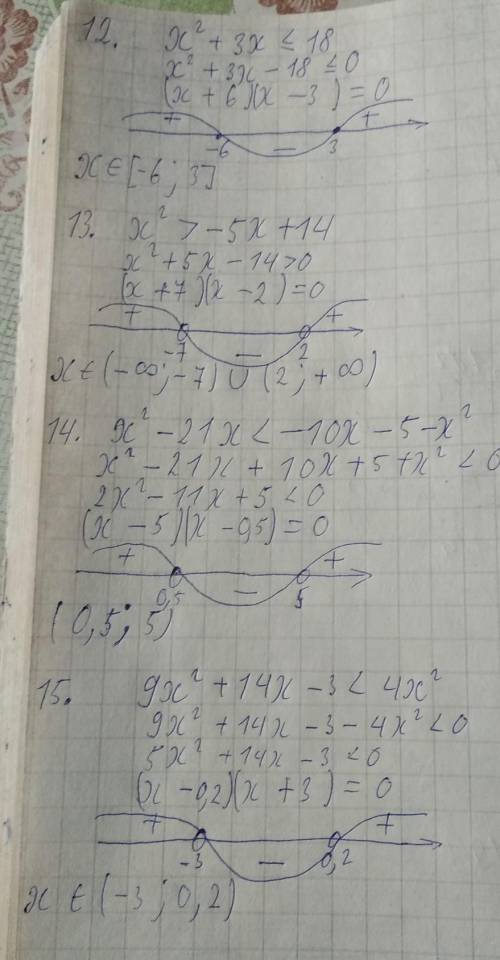 12. x² + 3x ≤ 18
x² + 3x - 18 ≤ 0
(x + 6)(x - 3) = 0
+ +
-6 — 3
x ∈ [-6; 3]
13. x² > -5x + 14
x² + 5x - 14 > 0
(x + 7)(x - 2) = 0
+ +
-7 — 2
x ∈ (-∞; -7) ∪ (2; +∞)
14. x² - 21x < -10x - 5 - x²
x² - 21x + 10x + 5 + x² < 0
2x² - 11x + 5 < 0
(x - 5)(x - 0,5) = 0
+ +
0,5 — 5
(0,5; 5)
15. 9x² + 14x - 3 < 4x²
9x² + 14x - 3 - 4x² < 0
5x² + 14x - 3 < 0
(x - 0,2)(x + 3) = 0
+ +
-3 — 0,2
x ∈ (-3; 0,2)